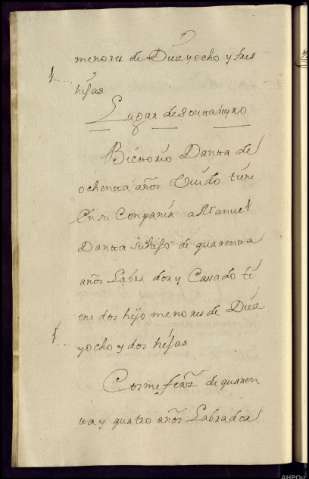 menores de Diez yocho y tres
hijas
Lugar de
Bitorio Danta de
ochenta años Viudo tiene
En su Conpania a Manuel
Danta su hijo de quarenta
años Labrador y Casado ti
ene dos hijo menores de Diez
yocho y dos hijas
Cosme fernz de quaren
ta y quatro años Labrador